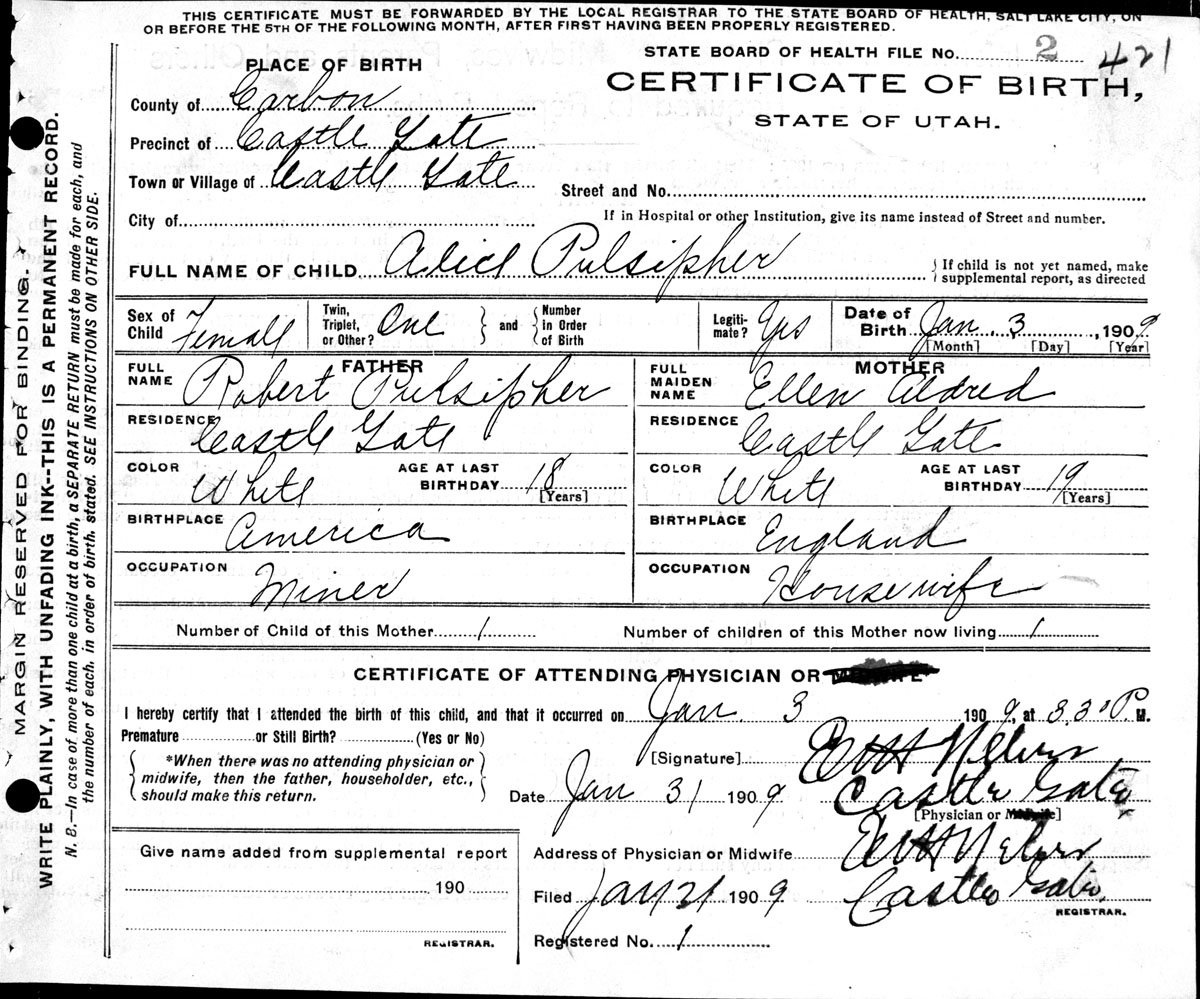 THIS CERTIFICATE MUST BE FORWARDED BY THE LOCAL REGISTRAR TO THE STATE BOARD OF HEALTH, SALT LAKE CITY, ON
OR BEFORE THE 5TH OF THE FOLLOWING MONTH, AFTER FIRST HAVING BEEN PROPERLY REGISTERED.
MARGIN RESERVED FOR BINDING.
WRITE PLAINLY, WITH UNFADING INK--THIS IS A PERMANENT RECORD.
N. B.—In case of more than one child at a birth, a SEPARATE RETURN must be made for each, and
the number of each, in order of birth, stated. SEE INSTRUCTIONS ON OTHER SIDE.
STATE BOARD OF HEALTH FILE No. 2 421
PLACE OF BIRTH
CERTIFICATE OF BIRTH,
STATE OF UTAH.
County of Carbon
Precinct of Castle Gate
Town or Village of Castle Gate
Street and No.
City of
If in Hospital or other Institution, give its name instead of Street and number.
FULL NAME OF CHILD Alice Pulsipher
If child is not yet named, make
supplemental report, as directed
Sex of Child Female
Twin, Triplet, or Other? One
and Number in Order of Birth
Legiti-mate? Yes
Date of Birth Jan. 3, 1909
[Month] [Day] [Year]
FATHER
FULL NAME Robert Pulsipher
RESIDENCE Castle Gate
COLOR White AGE AT LAST BIRTHDAY 18
[Years]
BIRTHPLACE America
OCCUPATION Miner
MOTHER
FULL MAIDEN NAME Ellen Aldred
RESIDENCE Castle Gate
COLOR White AGE AT LAST BIRTHDAY 19
[Years]
BIRTHPLACE England
OCCUPATION Housewife
Number of Child of this Mother 1 Number of children of this Mother now living 1
CERTIFICATE OF ATTENDING PHYSICIAN OR
I hereby certify that I attended the birth of this child, and that it occurred on Jan. 3 1909, at 3.30 P. M.
Premature or Still Birth? (Yes or No)
*When there was no attending physician or
midwife, then the father, householder, etc.,
should make this return.
[Signature]
Date Jan 31 1909 Castle Gate
[Physician or Midwife]
Give name added from supplemental report
190
REGISTRAR.
Address of Physician or Midwife
Filed Jan 21 1909 Castle Gate
REGISTRAR.
Registered No. 1